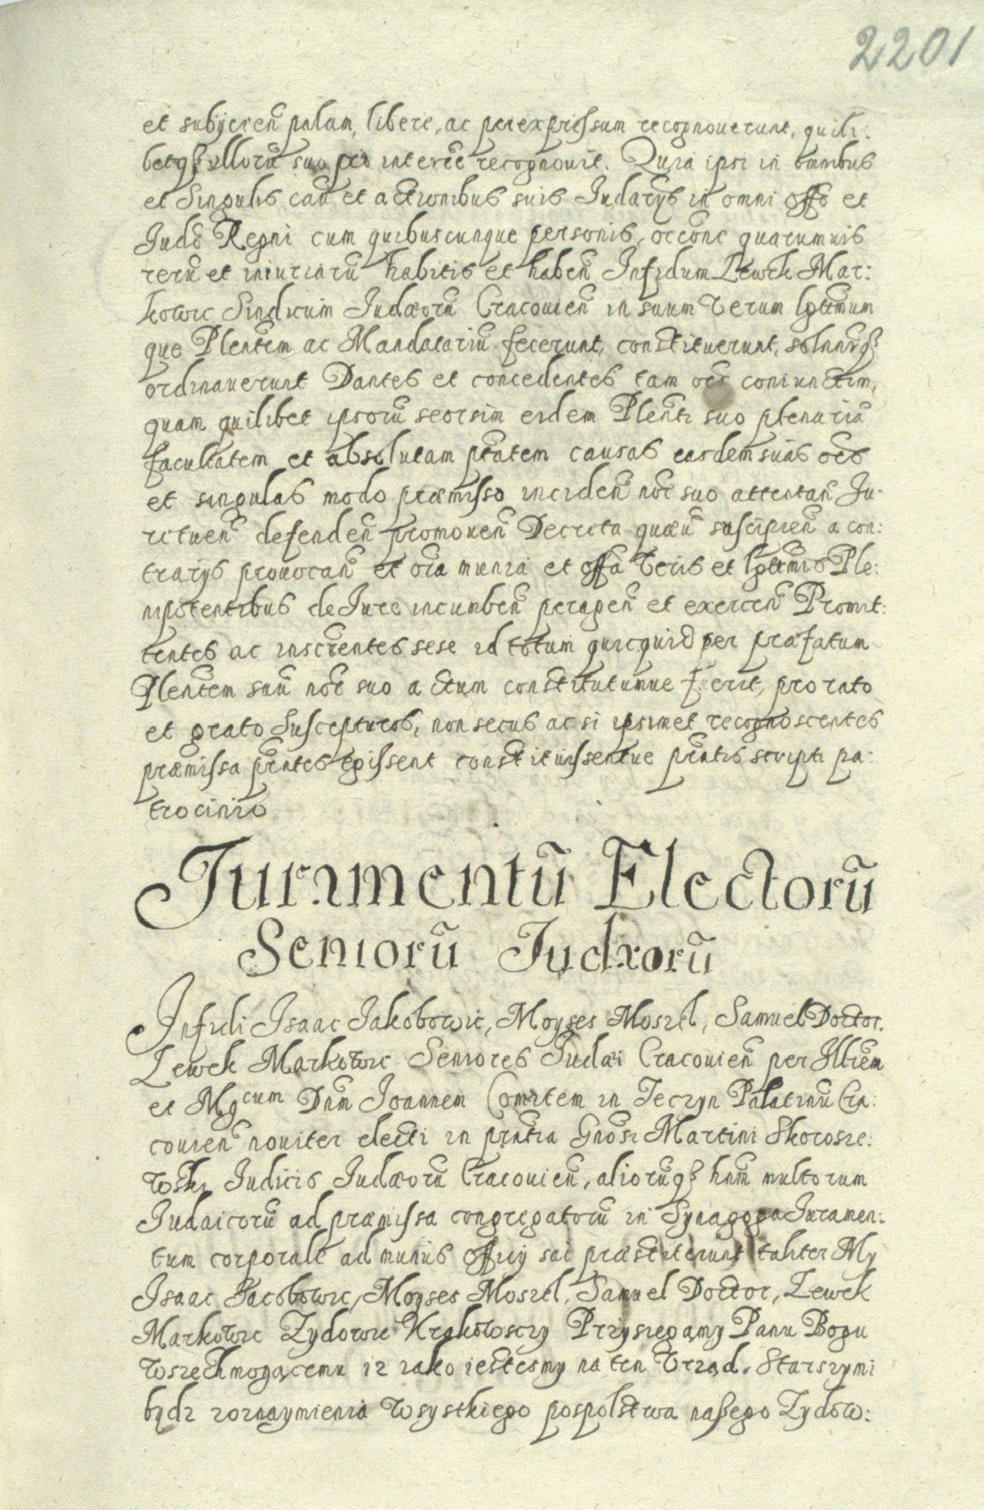 2201
et subijcien̄ palam, libere, ac per expressum recognouerunt, quili:
betq̃ ullorū suo pro interēe recognouit. Quia ipsi in omnibus
et Singulis caū et actionibus suis Judarijs in omni offō et
Judō Regni cum quibuscunque personis, occōne quarumuis
rerū et iniuriarū habitis et haben̄ Infidum Lewek Mar:
kowic Sindicum Judæorū Cracouien̄ in suum verum lgttimum
que Plentēm ac Mandatariū fecerunt, constituerunt, solnnrq̃
ordinauerunt Dantes et concedentes tam oēs coniunctim,
quam quilibet ipsorū seorsim eidem Plenti suo plenariā
facultatem et absolutam ptātem causas easdem suas oēs
et singulas modo præmisso inciden̄ nōe suo attentan̄ Ju:
rituen̄ defenden̄ promouen̄ Decreta quæuis suscipien̄ a con:
trarys prouocan̄ et oīa munia et offā veris et lgttimis Ple:
nipotentibus de Jure incumben̄ peragen̄ et exercen̄ Promit:
tentes ac inscrēntes sese id totum quicquid per præfatum
Plentēm suū nōe suo actum constitutumue fuerit, pro rato
et grato Suscepturos, non secus ac si ipsimet recognoscentes
præmissa pntes egissent constituissentue pntis scripti pa:
trocinio
Juramentū Electorū
Seniorū Judæorū
Infidi Isaac Jakobowic, Moyses Moszel, Samuel Doctor,
Lewek Markowic Seniores Judæi Cracouien̄ per Illrēm
et Mgcum Dnm Joannem Comitem in Teczyn Palatinū Cra:
couien̄ nouiter electi in pntia Gnosi Martini Skorosze:
wski Judicis Judæorū Cracouien̄, aliorūq̃ hnm̄ multorum
Judaicorū ad præmissa congregatorū in Synagoga Juramen:
tum corporale ad munus officij sui præstiterunt taliter My
Isaac Jacobowic, Moyses Moszel, Samuel Doctor, Lewek
Markowic Zydowie Krakowsczy Przysiegamy Panu Bogu
wszechmogącemu iz iako iestesmy na ten Vrząd Starszymi
bydz zoznaymienia wsystkiego pospolstwa naßego Zydow: